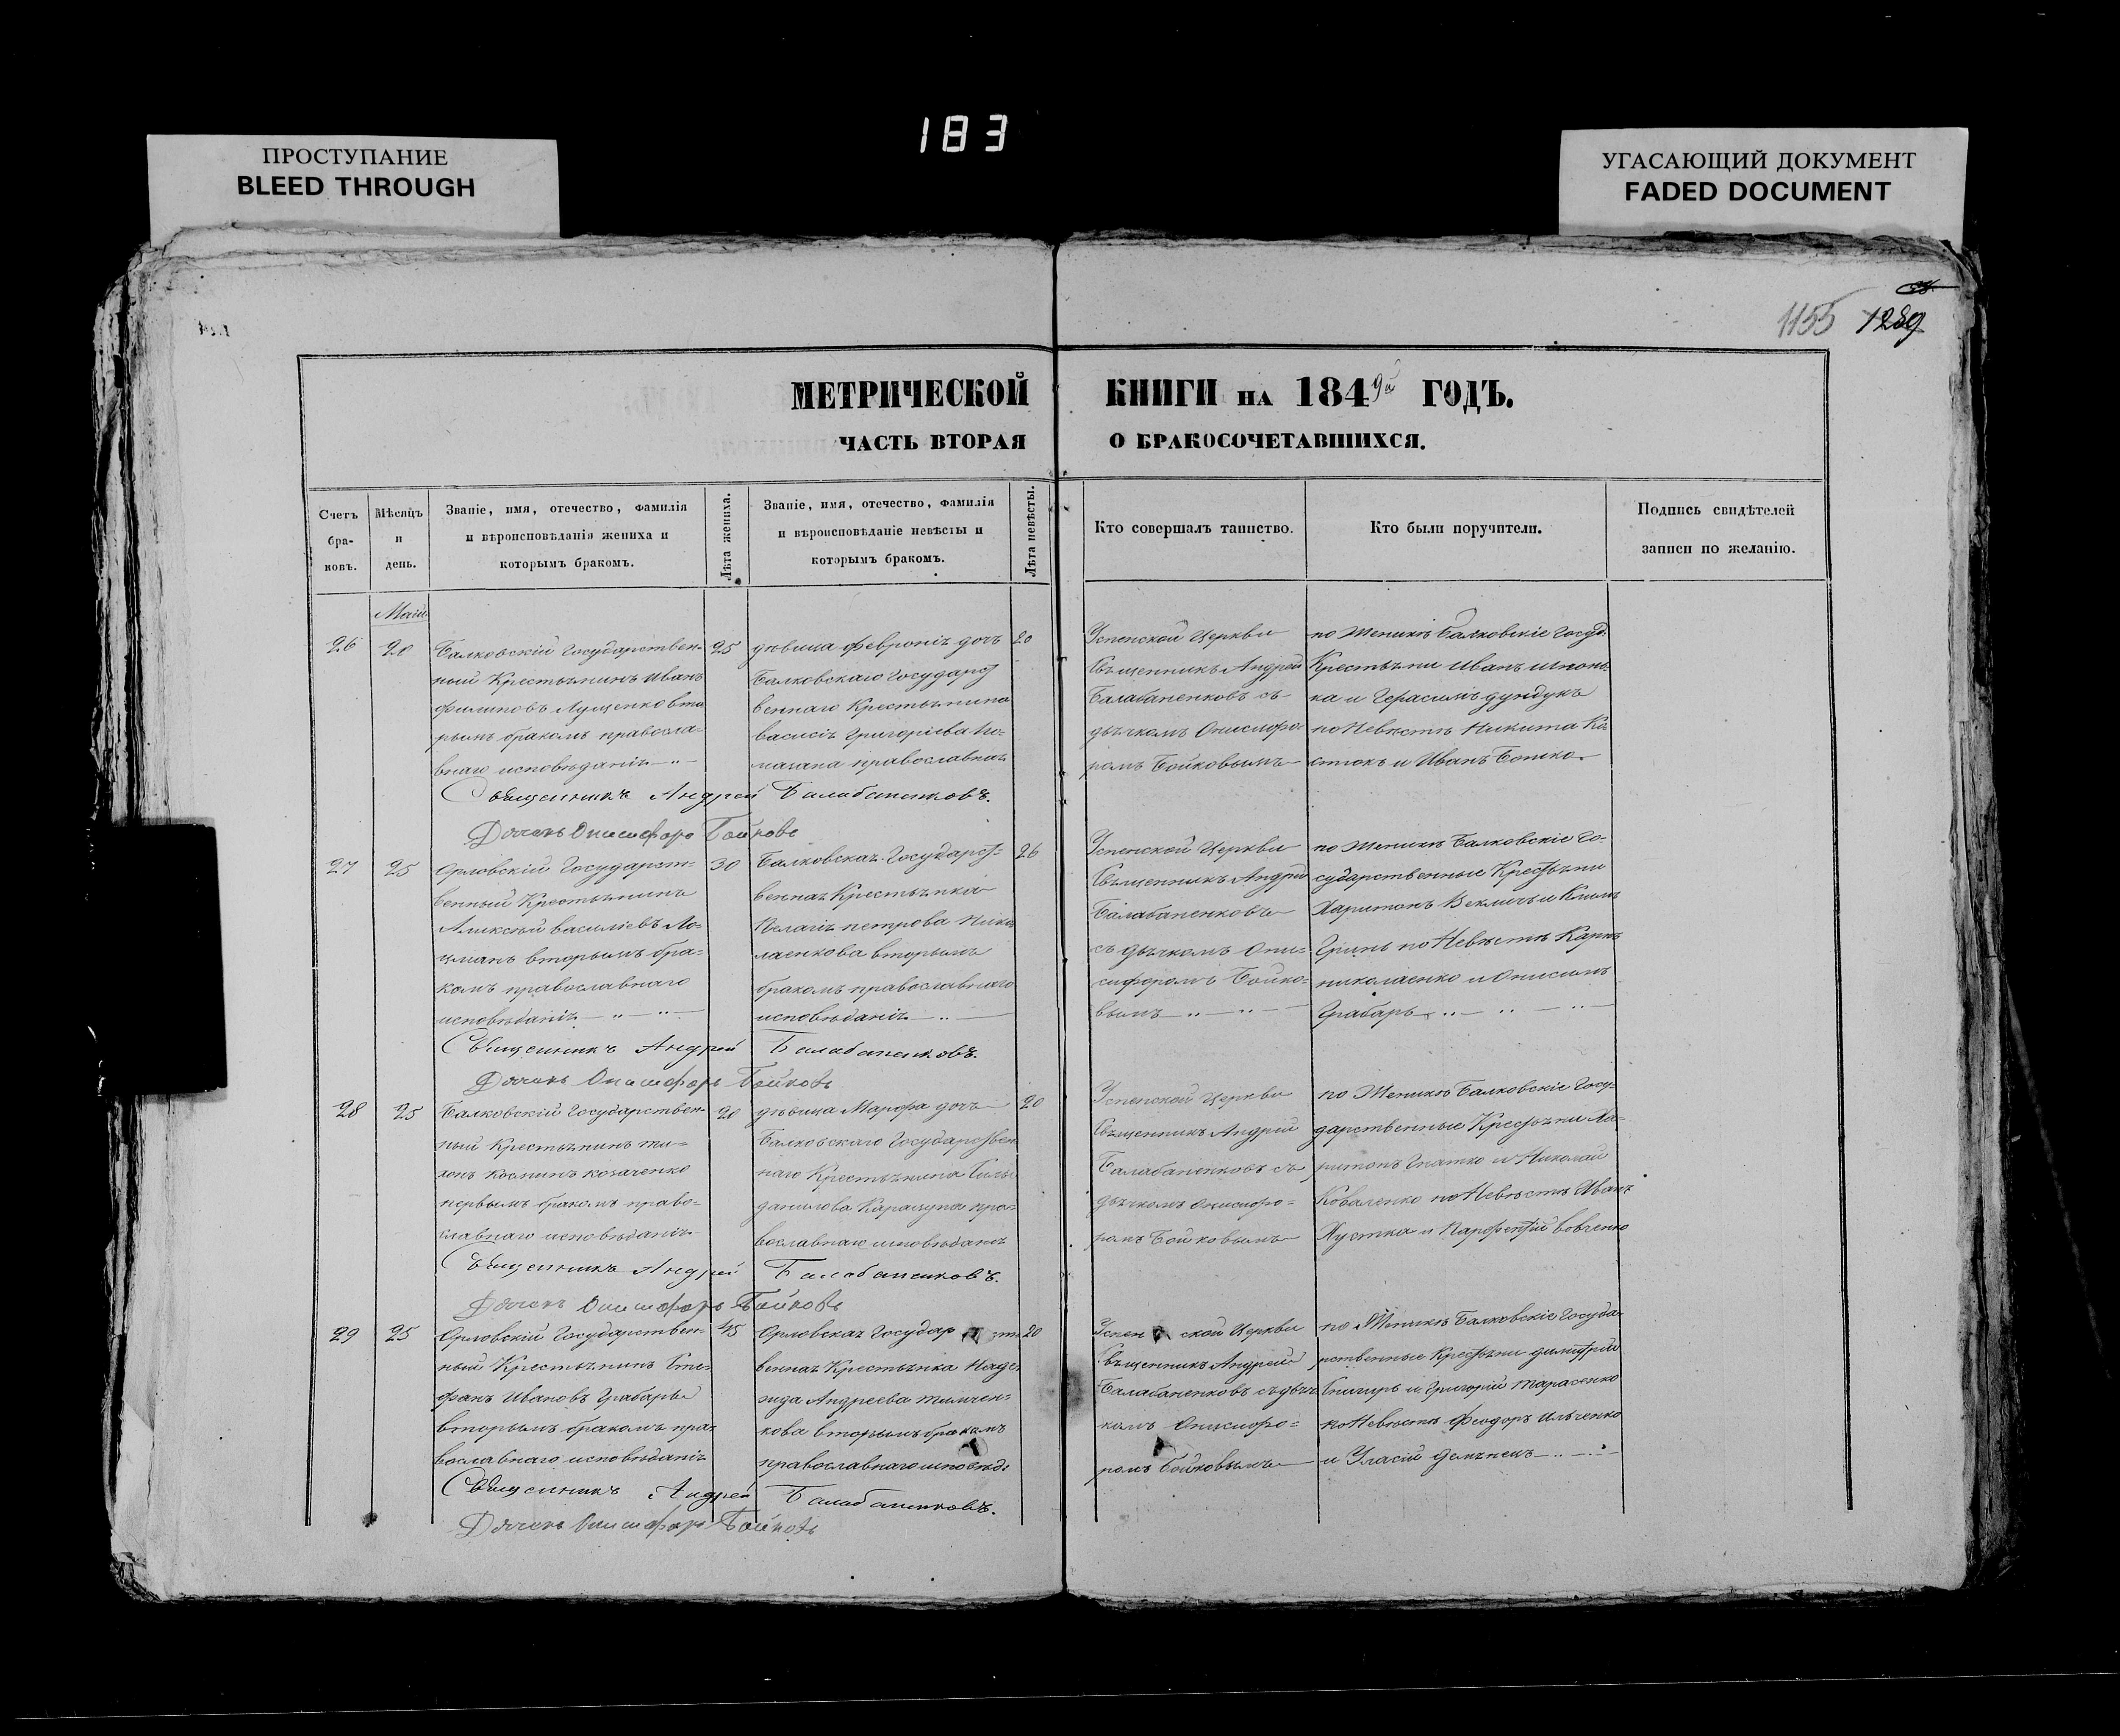 183
ПРОСТУПАНИЕ
BLEED THROUGH
УГАСАЮЩИЙ ДОКУМЕНТ
FADED DOCUMENT
1155 1289
МЕТРИЧЕСКОЙ КНИГИ НА 1849й ГОДЪ.
ЧАСТЬ ВТОРАЯ О БРАКОСОЧЕТАВШИХСЯ.
Счетъ
бра-
ковъ.
Мѣсяцъ
и
день.
Званіе, имя, отечество, фамилія
и вѣроисповѣданія жениха и
которымъ бракомъ.
Лѣта жениха.
Званіе, имя, отечество, фамилія
и вѣроисповѣданіе невѣсты и
которымъ бракомъ.
Лѣта невѣсты.
Кто совершалъ таинство.
Кто были поручители.
Подпись свидѣтелей
записи по желанію.
Маій
26
20
Балковскій Государствен-
ный Крестьянинъ Иванъ
Филиповъ Луценко вто
рымъ бракомъ правосла-
внаго исповѣданія
25
дѣвица Февронія дочь
Балковскаго Государст
веннаго Крестьянина
Григоріева
православная
20
Успенской Церкви
Священникъ Андрей
Балабаненковъ съ
дьячкомъ Онисифо-
ромъ Бойковымъ
по Женихѣ Балковскіе Госуд:
Крестьяни Иванъ
ка и Герасимъ Дундукъ
по Невѣстѣ Никита Ко-
стюкъ и Иванъ Бошко
Священникъ Андрей Балабаненковъ.
Дячекъ Онисифоръ Бойковъ
27
25
Орловскій Государст-
венный Крестьянинъ
Аликсѣй Василіевъ Ло-
цманъ вторымъ бра-
комъ православнаго
исповѣданія
30
Балковская Государст-
венная Крестьянка
Пелагія Петрова Нико
лаенкова вторымъ
бракомъ православнаго
исповѣданія
26
Успенской Церкви
Священникъ Андрей
Балабаненковъ
съ дьячкомъ Они-
сифоромъ Бойко-
вымъ
по Женихѣ Балковскіе Го-
сударственные Крестьяни
Харитонъ Векличъ и Климъ
Гринь по Невѣстѣ Карпъ
Николаенко и Онисимъ
Грабарь
Священникъ Андрей Балабаненковъ.
Дячекъ Онисифоръ Бойковъ
28
25
Балковскій Государствен-
ный Крестьянинъ Ти-
хонъ Козминъ Козаченко
первымъ бракомъ право-
славнаго исповѣданія
20
дѣвица Марфа дочь
Балковскаго Государствен
наго Крестьянина Силы
Данилова Карацупа пра-
вославнаго исповѣданія
20
Успенской Церкви
Священникъ Андрей
Балабаненковъ съ
дьячкомъ Онисифо-
ромъ Бойковымъ
по Женихѣ Балковскіе Госу-
дарственные Крестьяни Ха-
ритонъ Гнатко и Николай
Коваленко по Невѣстѣ Иванъ
Хустка и Парфентій Вовченко
Священникъ Андрей Балабаненковъ.
Дячекъ Онисифоръ Бойковъ
29
25
Орловскій Государствен-
ный Крестьянинъ Сте-
фанъ Ивановъ Грабарь
вторымъ бракомъ пра-
вославнаго исповѣданія
45
Орловская Государст
венная Крестьянка Наде
жда Андреева Тимчен-
кова вторымъ бракомъ
православнаго исповѣд:
20
Успенской Церкви
Священникъ Андрей
Балабаненковъ съ дьяч
комъ Онисифо-
ромъ Бойковымъ
по Женихѣ Балковскіе Госуда-
рственные Крестьяни Димитрій
Снигирь и Григорій Тарасенко
по Невѣстѣ Феодоръ Ильченко
и Уласій
Священникъ Андрей Балабаненковъ.
Дячекъ Онисифоръ Бойковъ